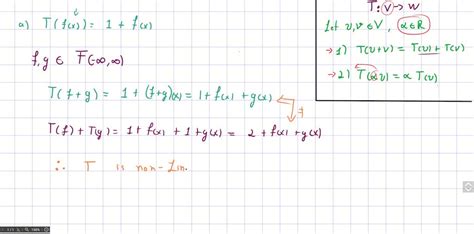 a) T(f(x)) = 1 + f(x)
f, g ∈ F(-∞, ∞)
T(f+g) = 1 + (f+g)(x) = 1 + f(x) + g(x)
≠
T(f) + T(g) = 1 + f(x) + 1 + g(x) = 2 + f(x) + g(x)
∴ T is non-Lin.
T: V → W
Let u, v ∈ V, α ∈ R
→ 1) T(u+v) = T(u) + T(v)
→ 2) T(αu) = α T(u)